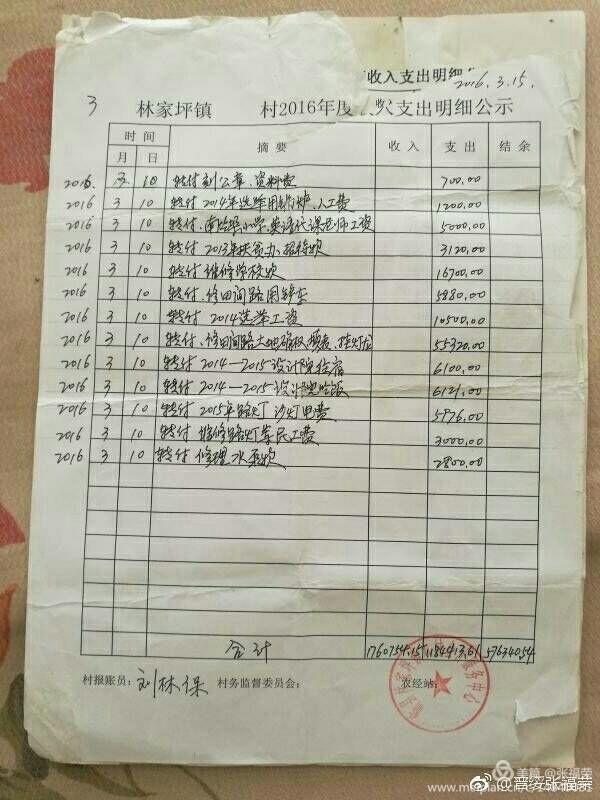 收入支出明细
2016.3.15.
3 林家坪镇 村2016年度 支出明细公示
时间 摘要 收入 支出 结余
月 日
2016. 3 10 转付刻公章、资料费 700.00
2016 3 10 转付2014年选举用 、人工费 1200.00
2016 3 10 转付、 小学、英语代课老师工资 5000.00
2016 3 10 转付2013年扶贫办、招待款 3120.00
2016 3 10 转付维修学校款 16700.00
2016 3 10 转付、修田间路用铲车 5880.00
2016 3 10 转付 2014选举工资 10500.00
2016 3 10 转付、修田间路土地确权 55320.00
2016 3 10 转付 2014—2015设计院住宿 6100.00
2016 3 10 转付 2014—2015设计院吃饭 6121.00
2016 3 10 转付 2015年路灯 电费 5976.00
2016 3 10 转付 维修路灯等民工费 3000.00
2016 3 10 转付 修理水泵款 2800.00
合计 1760754.15 1184413.61 576340.54
村报账员：刘林保 村务监督委员会： 农经站：
美篇 @张福荣
www.meipian.cn
@晋绥张福荣